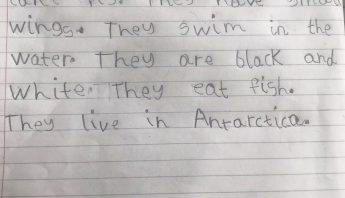 They have small
wings. They swim in the
water. They are black and
white. They eat fish.
They live in Antarctica.